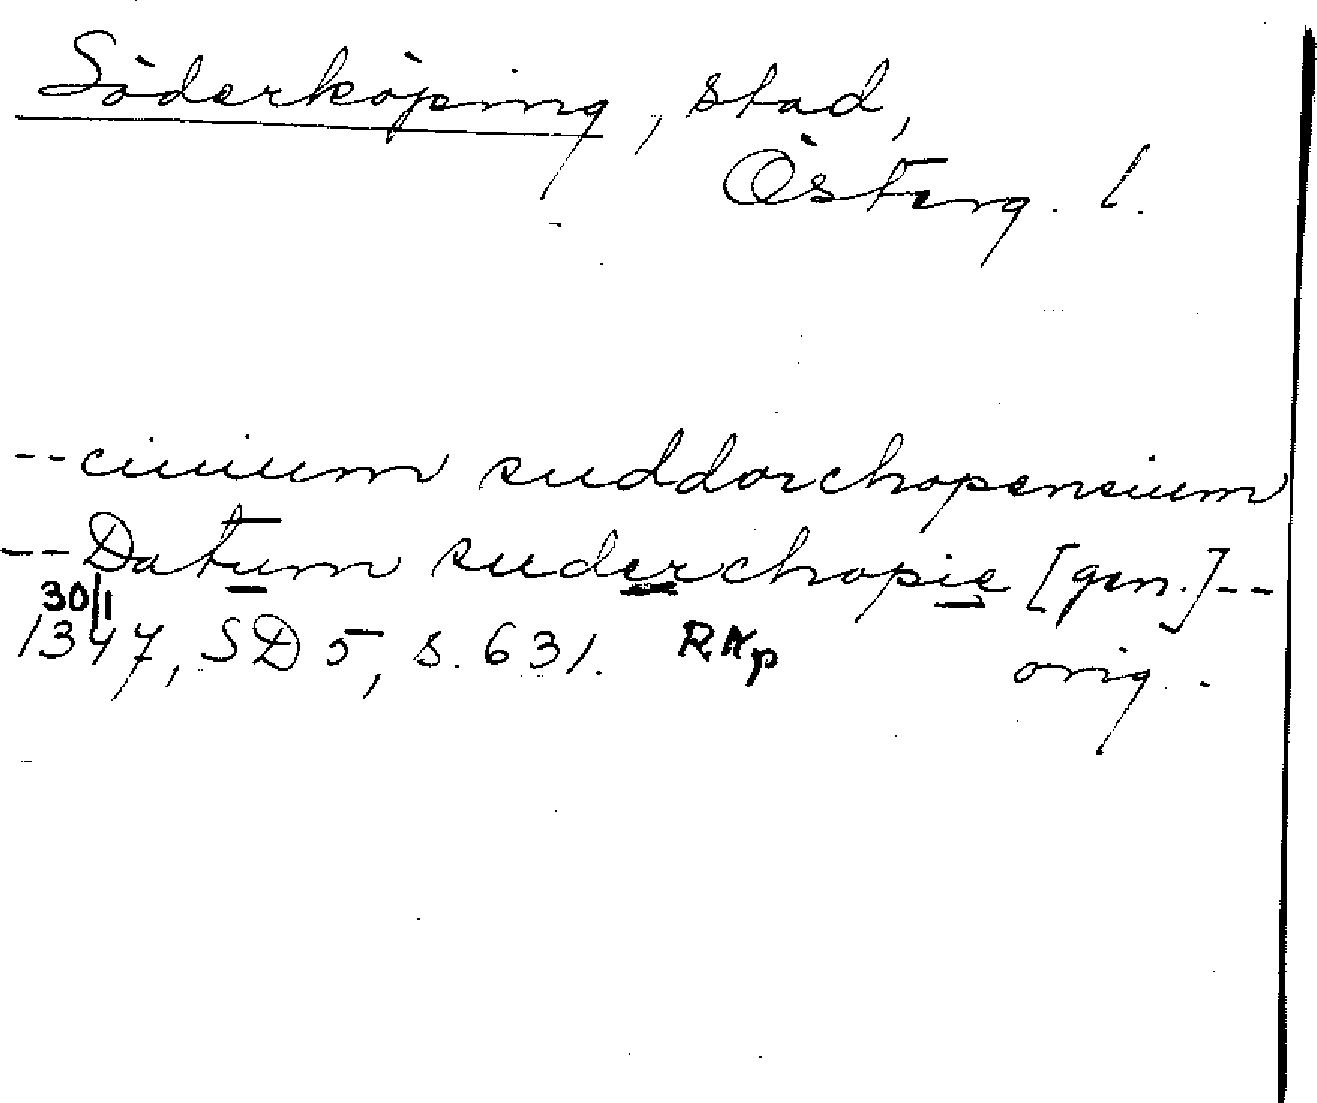 Söderköping, stad,
Österg. l.
--ciuium suddorchopensium
--Datum suderchopie [gen.]--
30/1
1347, SD 5, s. 631. RAp orig.